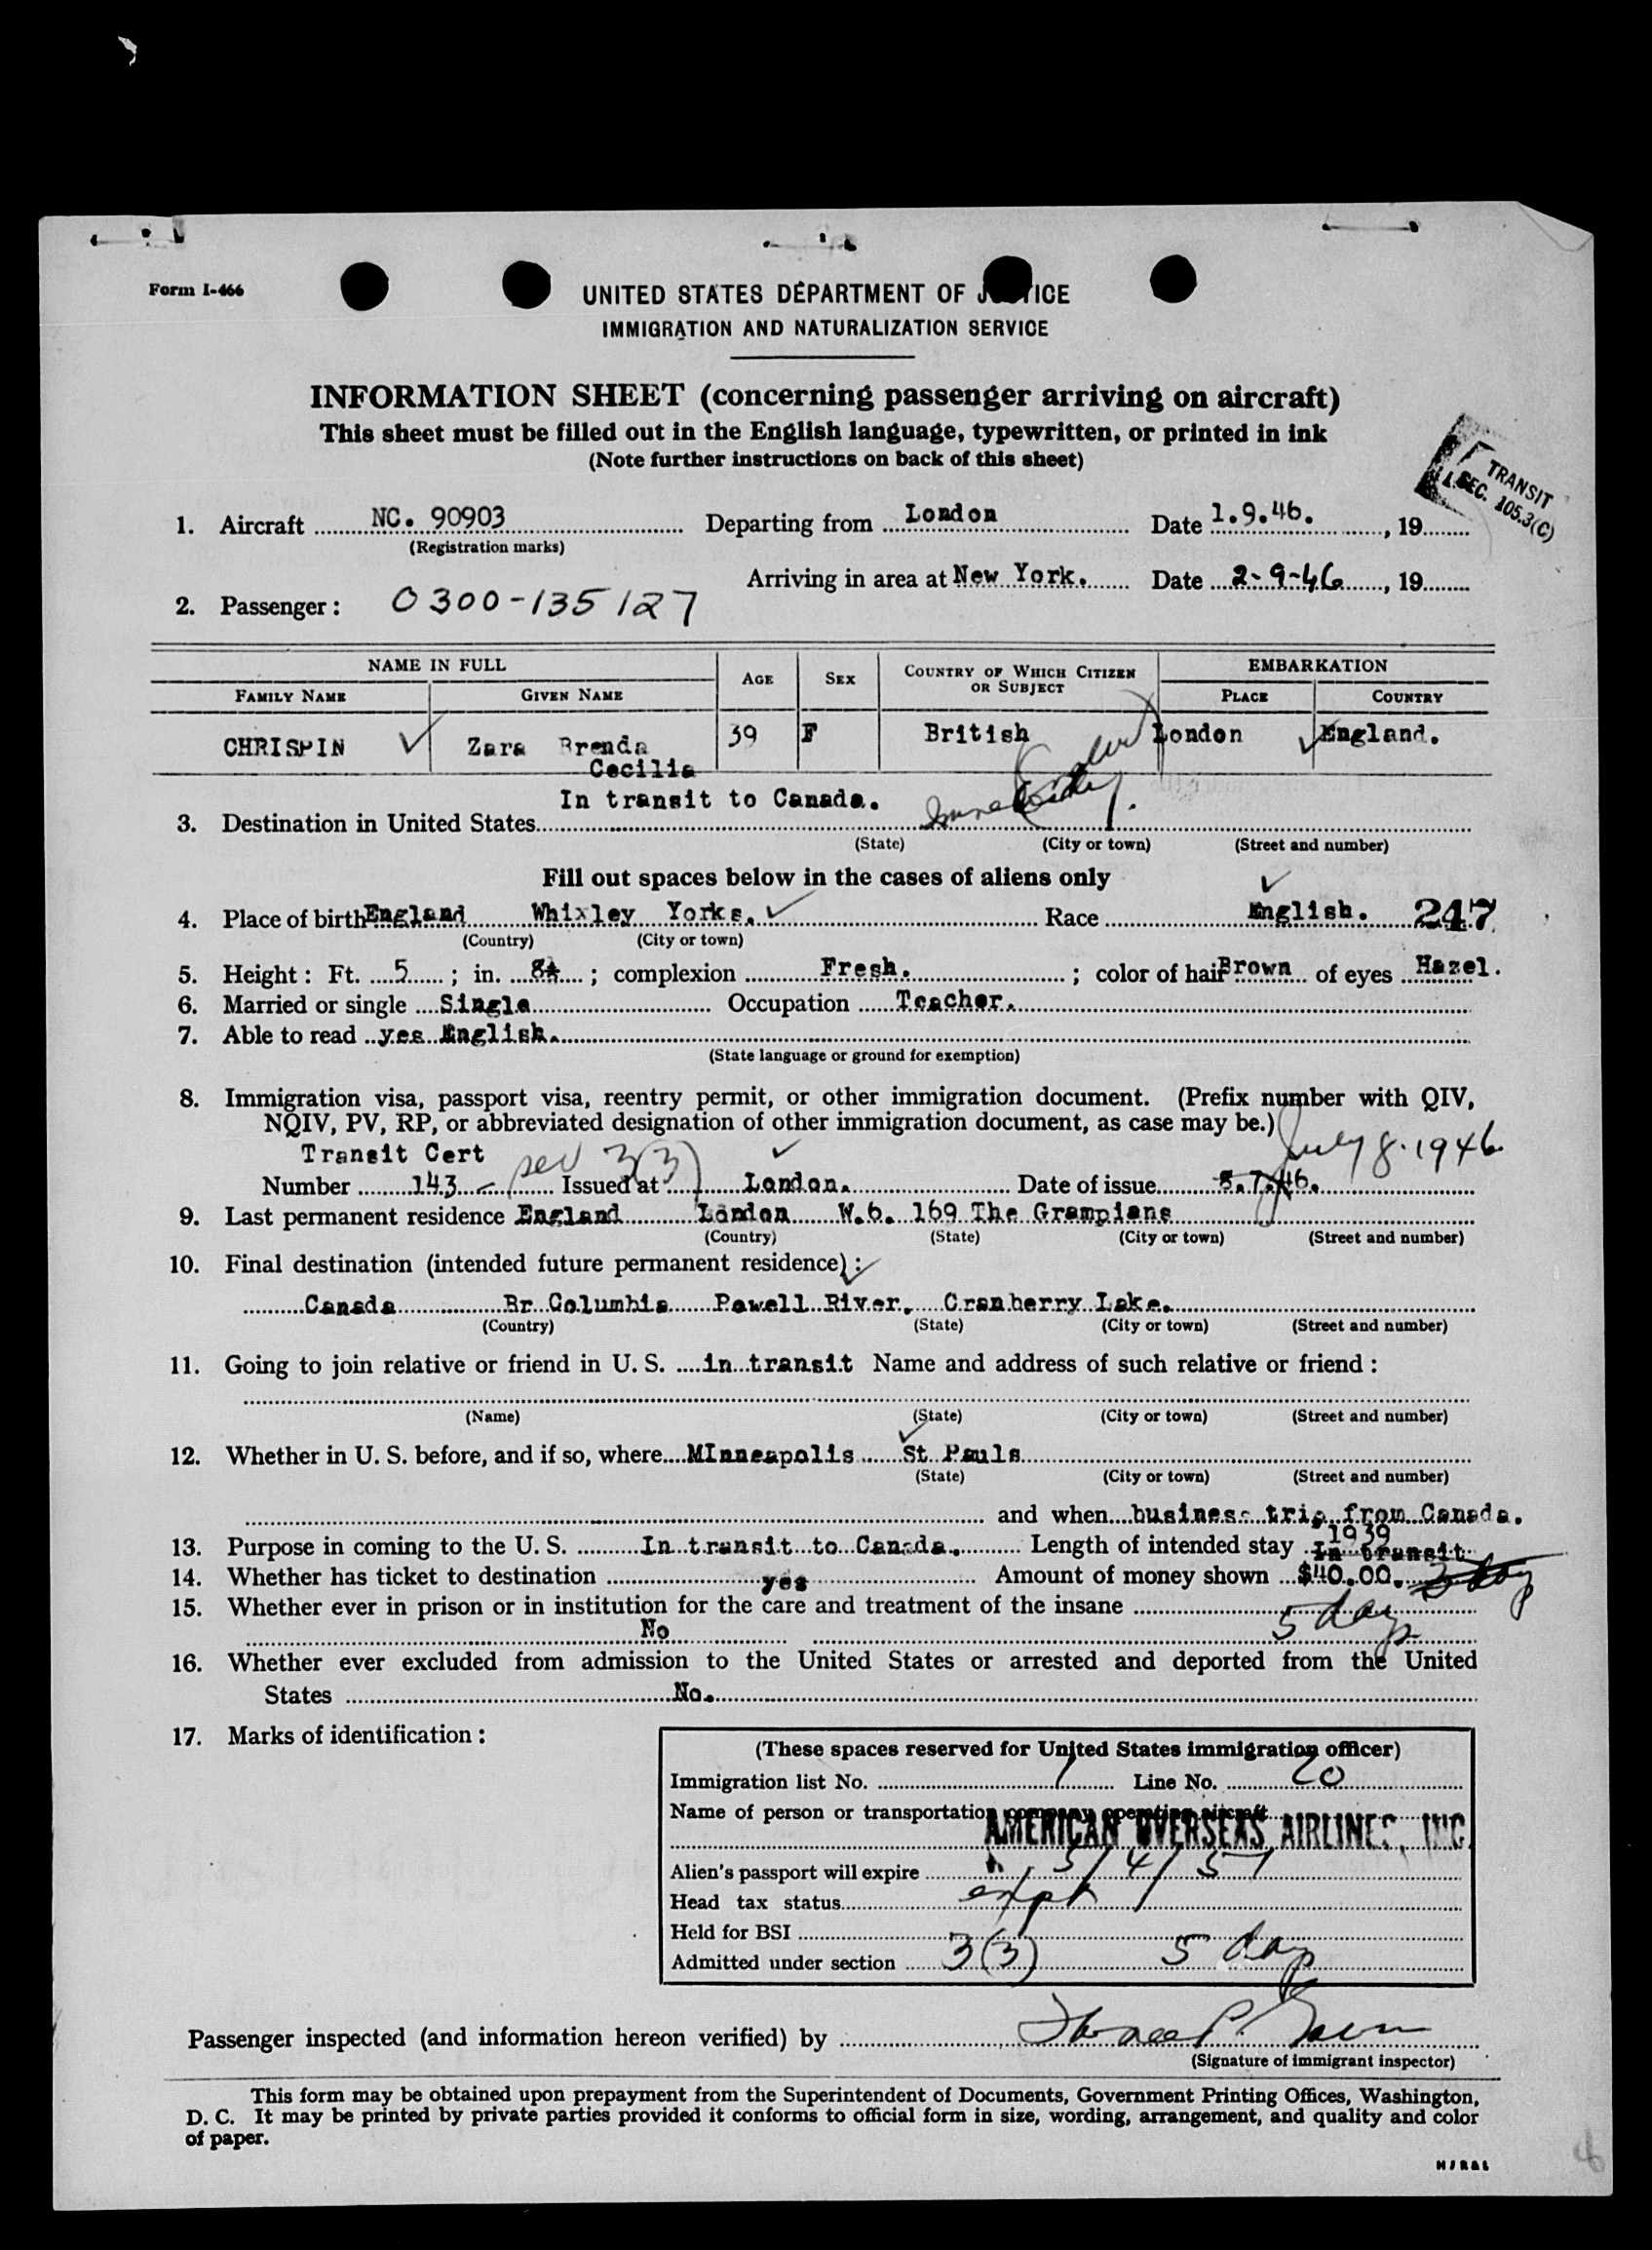 Form I-466
UNITED STATES DEPARTMENT OF J TICE
IMMIGRATION AND NATURALIZATION SERVICE
INFORMATION SHEET (concerning passenger arriving on aircraft)
This sheet must be filled out in the English language, typewritten, or printed in ink
(Note further instructions on back of this sheet)
TRANSIT
SEC. 105.3(C)
1. Aircraft NC. 90903 Departing from London Date 1.9.46. , 19
(Registration marks)
Arriving in area at New York. Date 2-9-46 , 19
2. Passenger: 0300-135127
NAME IN FULL AGE SEX COUNTRY OF WHICH CITIZEN OR SUBJECT EMBARKATION
FAMILY NAME GIVEN NAME PLACE COUNTRY
CHRISPIN Zara Brenda 39 F British London England.
Cecilia
In transit to Canada.
3. Destination in United States
(State) (City or town) (Street and number)
Fill out spaces below in the cases of aliens only
4. Place of birth England Whixley Yorks. Race English. 247
(Country) (City or town)
5. Height: Ft. 5 ; in. 8½ ; complexion Fresh. ; color of hair Brown of eyes Hazel.
6. Married or single Single Occupation Teacher.
7. Able to read yes English.
(State language or ground for exemption)
8. Immigration visa, passport visa, reentry permit, or other immigration document. (Prefix number with QIV,
NQIV, PV, RP, or abbreviated designation of other immigration document, as case may be.)
Transit Cert 3(3) July 8.1946
Number 143 Issued at London. Date of issue 8.7.46.
9. Last permanent residence England London W.6. 169 The Grampians
(Country) (State) (City or town) (Street and number)
10. Final destination (intended future permanent residence):
Canada Br Columbia Powell River, Cranberry Lake.
(Country) (State) (City or town) (Street and number)
11. Going to join relative or friend in U. S. in transit Name and address of such relative or friend:
(Name) (State) (City or town) (Street and number)
12. Whether in U. S. before, and if so, where MInneapolis St Pauls
(State) (City or town) (Street and number)
and when business trip from Canada.
1939
13. Purpose in coming to the U. S. In transit to Canada. Length of intended stay In transit
14. Whether has ticket to destination yes Amount of money shown $40.00. 3 day
15. Whether ever in prison or in institution for the care and treatment of the insane 5 days
No
16. Whether ever excluded from admission to the United States or arrested and deported from the United
States No.
17. Marks of identification:
(These spaces reserved for United States immigration officer)
Immigration list No. 1 Line No. 20
Name of person or transportation company operating aircraft
AMERICAN OVERSEAS AIRLINES, INC
Alien's passport will expire 3/4/51
Head tax status expt
Held for BSI
Admitted under section 3(3) 5 days
Passenger inspected (and information hereon verified) by
(Signature of immigrant inspector)
This form may be obtained upon prepayment from the Superintendent of Documents, Government Printing Offices, Washington,
D. C. It may be printed by private parties provided it conforms to official form in size, wording, arrangement, and quality and color
of paper.